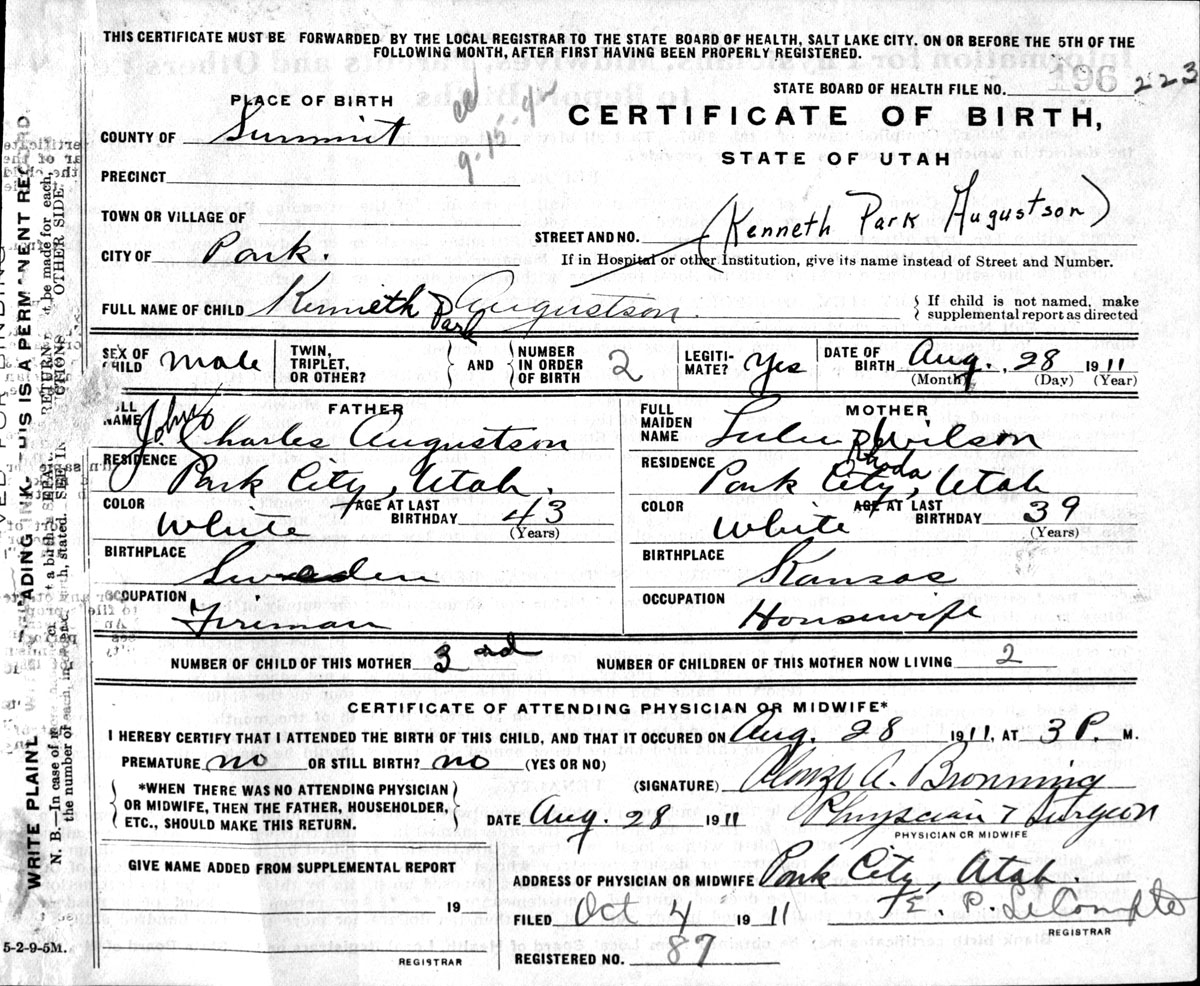 THIS CERTIFICATE MUST BE FORWARDED BY THE LOCAL REGISTRAR TO THE STATE BOARD OF HEALTH, SALT LAKE CITY, ON OR BEFORE THE 5TH OF THE
FOLLOWING MONTH, AFTER FIRST HAVING BEEN PROPERLY REGISTERED.
STATE BOARD OF HEALTH FILE NO. 196 223
PLACE OF BIRTH
CERTIFICATE OF BIRTH,
COUNTY OF Summit
STATE OF UTAH
PRECINCT
TOWN OR VILLAGE OF
STREET AND NO. (Kenneth Park Augustson)
CITY OF Park.
If in Hospital or other Institution, give its name instead of Street and Number.
FULL NAME OF CHILD Kenneth Park Augustson.
If child is not named, make
supplemental report as directed
SEX OF CHILD male
TWIN, TRIPLET, OR OTHER?
AND
NUMBER IN ORDER OF BIRTH 2
LEGITI- MATE? Yes
DATE OF BIRTH Aug., 28 1911
(Month) (Day) (Year)
FATHER
FULL NAME John Charles Augustson
RESIDENCE Park City, Utah.
COLOR White
AGE AT LAST BIRTHDAY 43
(Years)
BIRTHPLACE Sweden
OCCUPATION Fireman
MOTHER
FULL MAIDEN NAME Lulu Rhoda Wilson
RESIDENCE Park City, Utah
COLOR White
AGE AT LAST BIRTHDAY 39
(Years)
BIRTHPLACE Kansas
OCCUPATION Housewife
NUMBER OF CHILD OF THIS MOTHER 3rd
NUMBER OF CHILDREN OF THIS MOTHER NOW LIVING 2
CERTIFICATE OF ATTENDING PHYSICIAN OR MIDWIFE*
I HEREBY CERTIFY THAT I ATTENDED THE BIRTH OF THIS CHILD, AND THAT IT OCCURED ON Aug. 28 1911, AT 3 P. M.
PREMATURE no OR STILL BIRTH? no (YES OR NO)
*WHEN THERE WAS NO ATTENDING PHYSICIAN
OR MIDWIFE, THEN THE FATHER, HOUSEHOLDER,
ETC., SHOULD MAKE THIS RETURN.
(SIGNATURE) Alonzo A. Bronning
DATE Aug. 28 1911
Physician & Surgeon
PHYSICIAN OR MIDWIFE
GIVE NAME ADDED FROM SUPPLEMENTAL REPORT
19
REGISTRAR
ADDRESS OF PHYSICIAN OR MIDWIFE Park City, Utah
FILED Oct 4 1911
E. P. LeCompte
REGISTRAR
REGISTERED NO. 87
5-2-9-5M.
WRITE PLAINLY
THIS IS A PERMANENT RECORD